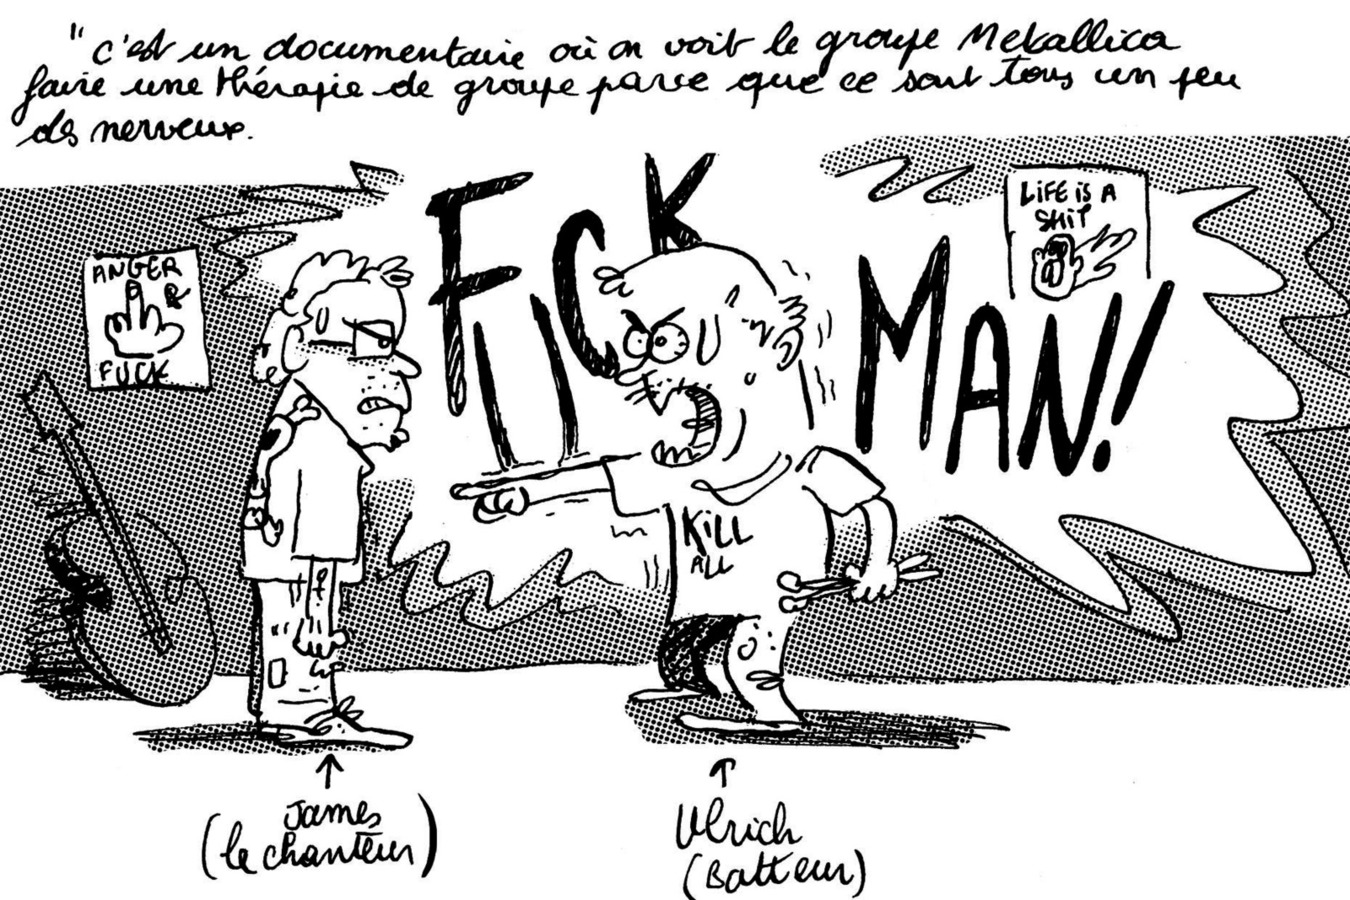 "c'est un documentaire où on voit le groupe Metallica
faire une thérapie de groupe parce que ce sont tous un peu
des nerveux.
FUCK
MAN!
LIFE iS A
SHIT
ANGER
FUCK
KiLL
ALL
James
(le chanteur)
Ulrich
(Batteur)